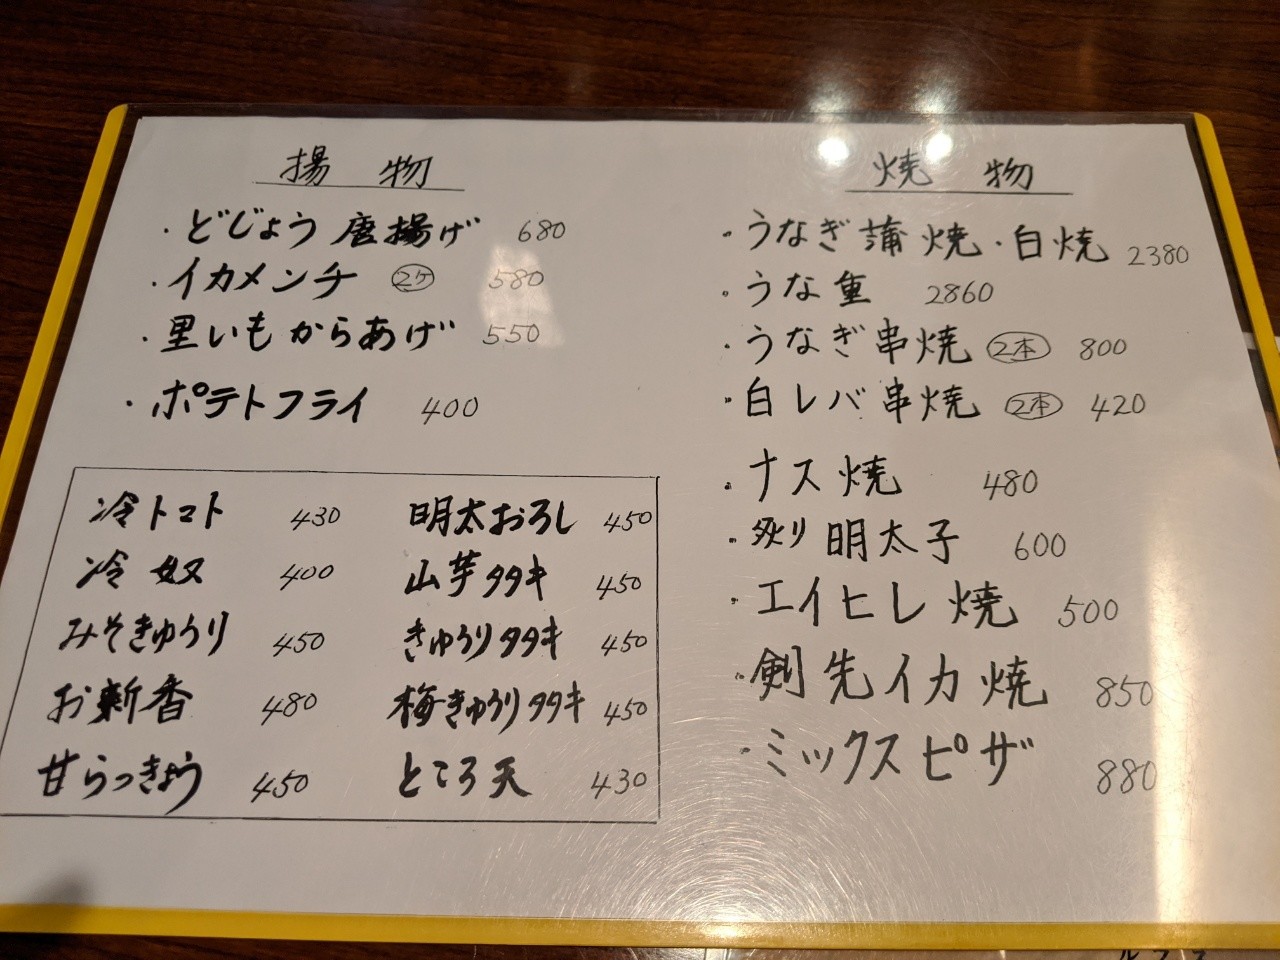 揚物
・どじょう唐揚げ 680
・イカメンチ 2ケ 580
・里いもからあげ 550
・ポテトフライ 400
冷トマト 430
冷奴 400
みそきゅうり 450
お新香 480
甘らっきょう 450
明太おろし 450
山芋タタキ 450
きゅうりタタキ 450
梅きゅうりタタキ 450
ところ天 430
焼物
・うなぎ蒲焼・白焼 2380
・うな重 2860
・うなぎ串焼 2本 800
・白レバ串焼 2本 420
・ナス焼 480
・炙り明太子 600
・エイヒレ焼 500
・剣先イカ焼 850
・ミックスピザ 880